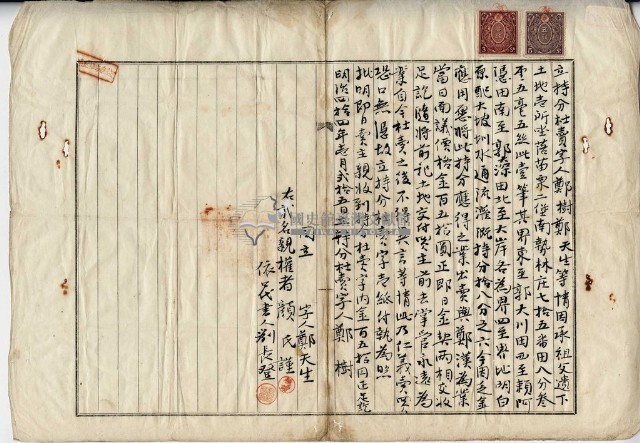 立持分杜賣字人鄭樹鄭天生等情因承祖父遺下
土地壹所坐落苗栗二堡南勢林庄七拾五番田八分叁
厘五毫五絲此壹筆其界東至郭大川田西至賴阿
憑田南至郭深田北至大岸各為界四至界址明白
原配大坡圳水通流灌溉持分拾八分之六今因乏金
應用愿將此持分應得之業出賣與鄭漢為業
當日面議價格金百五拾圓正即日金契兩相交收
足訖隨將前祀土地交付買主前去掌管永遠為
業自今杜賣之後不得異言等情此乃仁義賣買
恐口無憑故立持分杜賣字壹紙付執為照
批明即日賣主親收到持分杜賣字內金百五拾円正足訖
明治四拾四年壹月貳拾五日立持分杜賣字人鄭樹
仝立 字人鄭天生
右貳名親權者顏氏謹
依民書人劉長登
國史館臺灣文獻館